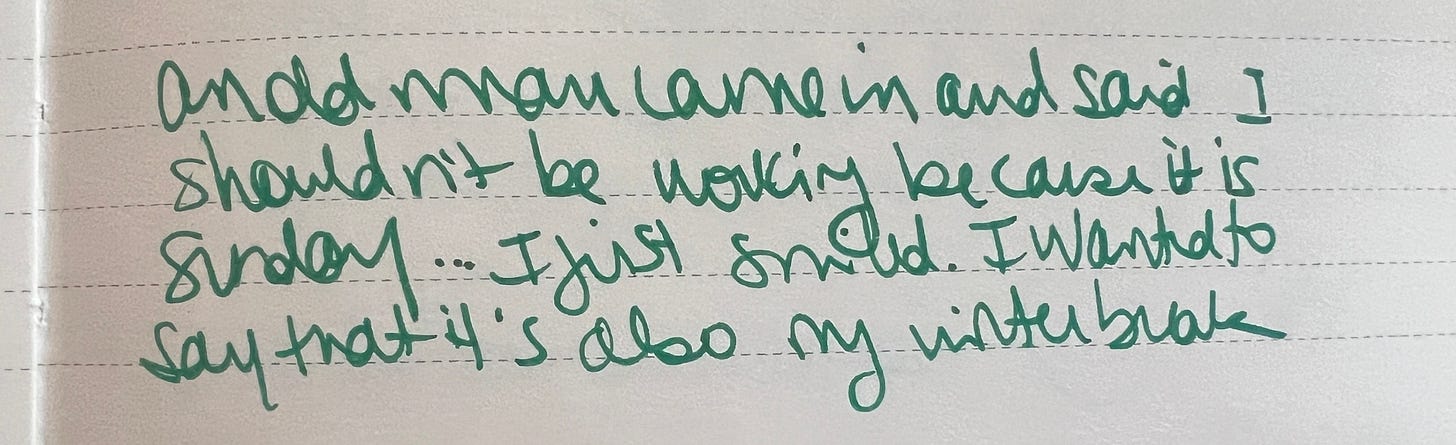 an old man came in and said I
shouldn't be working because it is
sunday... I just smiled. I wanted to
say that it's also my winter break